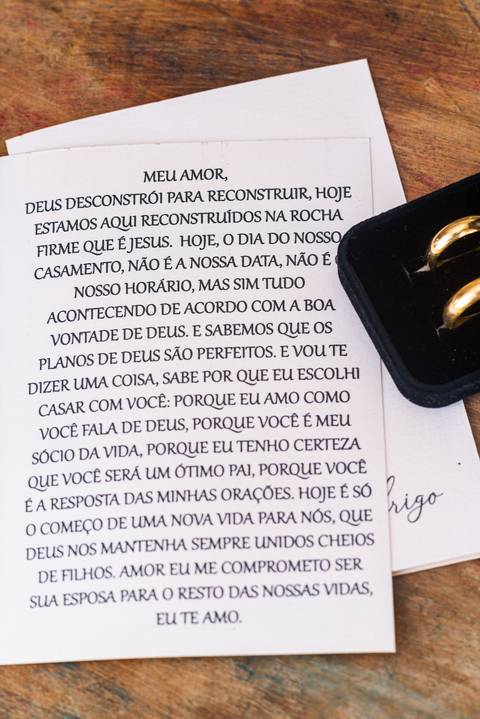 MEU AMOR,
DEUS DESCONSTRÓI PARA RECONSTRUIR, HOJE
ESTAMOS AQUI RECONSTRUÍDOS NA ROCHA
FIRME QUE É JESUS. HOJE, O DIA DO NOSSO
CASAMENTO, NÃO É A NOSSA DATA, NÃO É
NOSSO HORÁRIO, MAS SIM TUDO
ACONTECENDO DE ACORDO COM A BOA
VONTADE DE DEUS. E SABEMOS QUE OS
PLANOS DE DEUS SÃO PERFEITOS. E VOU TE
DIZER UMA COISA, SABE POR QUE EU ESCOLHI
CASAR COM VOCÊ: PORQUE EU AMO COMO
VOCÊ FALA DE DEUS, PORQUE VOCÊ É MEU
SÓCIO DA VIDA, PORQUE EU TENHO CERTEZA
QUE VOCÊ SERÁ UM ÓTIMO PAI, PORQUE VOCÊ
É A RESPOSTA DAS MINHAS ORAÇÕES. HOJE É SÓ
O COMEÇO DE UMA NOVA VIDA PARA NÓS, QUE
DEUS NOS MANTENHA SEMPRE UNIDOS CHEIOS
DE FILHOS. AMOR EU ME COMPROMETO SER
SUA ESPOSA PARA O RESTO DAS NOSSAS VIDAS,
EU TE AMO.